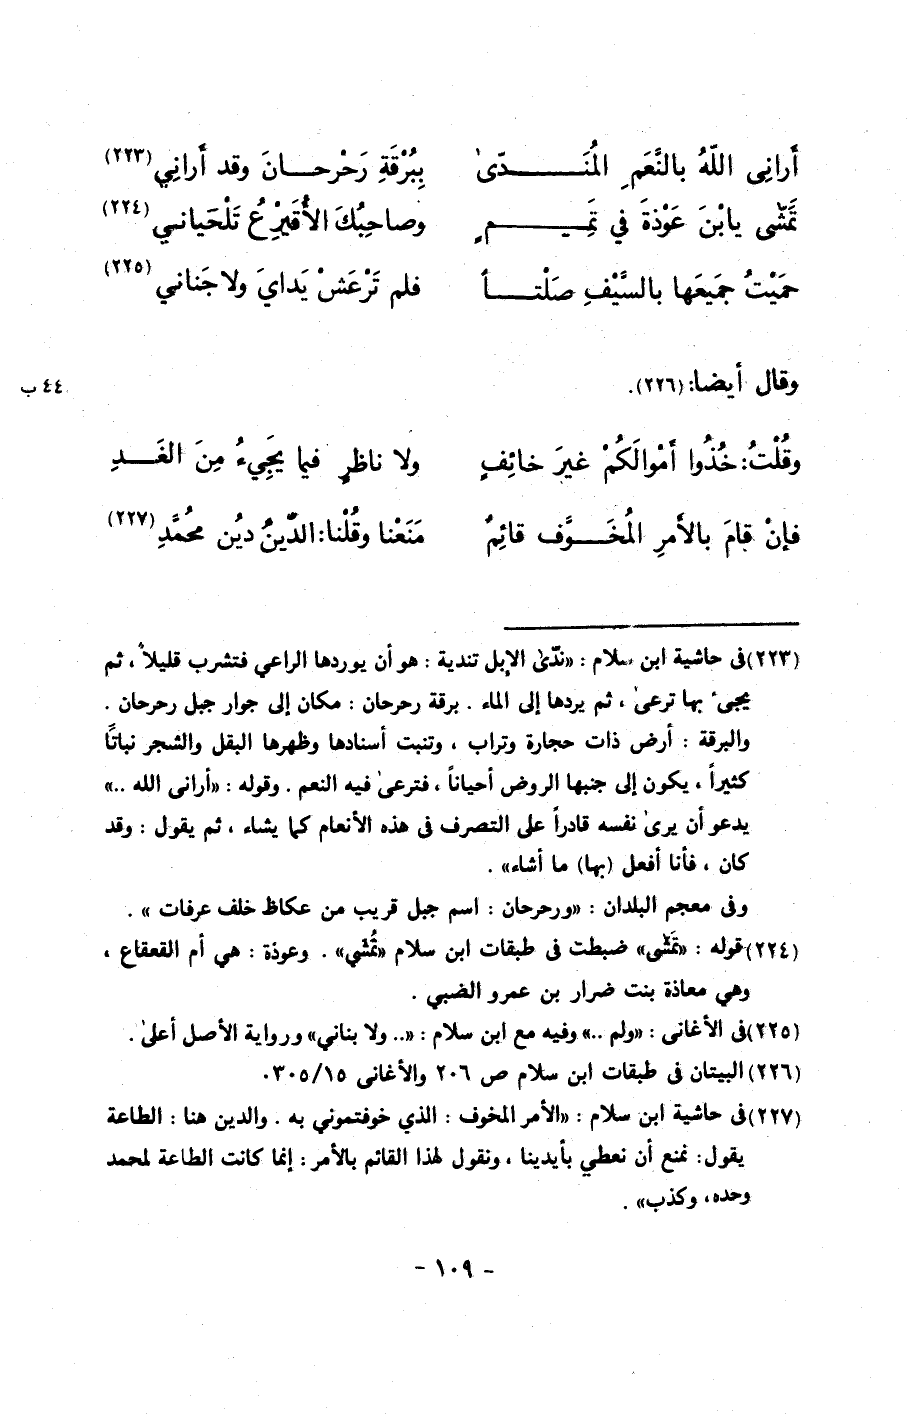 أَرانِى اللّهُ بالنَّعَمِ المُنَـــدّىٰ بِبُرْقَةِ رَحْرحـــانَ وقد أَراني (٢٢٣)
تَمَشّى يابْنَ عَوْذةَ في تَمِيـــمٍ وصاحِبُكَ الأُقَيْرِعُ تَلْحَياني (٢٢٤)
حَمَيْتُ جَمِيعَها بالسَّيْفِ صَلْتـــاً فلم تَرْعَشْ يَدايَ ولا جَناني (٢٢٥)
وقال أيضا: (٢٢٦).
٤٤ ب
وقُلْتُ: خُذُوا أَمْوالَكُمْ غيرَ خائِفٍ ولا ناظرٍ فيما يَجِيءُ مِنَ الغَـــدِ
فإنْ قامَ بالأَمرِ المُخَـــوَّف قائِمٌ مَنَعْنا وقُلْنا: الدِّينُ دينُ محُمَّدِ (٢٢٧)
(٢٢٣) فى حاشية ابن سلام : «ندّىٰ الإبل تندية : هو أن يوردها الراعي فتشرب قليلاً ، ثم
يجىء بها ترعىٰ ، ثم يردها إلى الماء . برقة رحرحان : مكان إلى جوار جبل رحرحان .
والبرقة : أرض ذات حجارة وتراب ، وتنبت أسنادها وظهرها البقل والشجر نباتًا
كثيراً ، يكون إلى جنبها الروض أحياناً ، فترعىٰ فيه النعم . وقوله : «أرانى الله ..»
يدعو أن يرىٰ نفسه قادراً على التصرف فى هذه الأنعام كما يشاء ، ثم يقول : وقد
كان ، فأنا أفعل (بها) ما أشاء» .
وفى معجم البلدان : «ورحرحان : اسم جبل قريب من عكاظ خلف عرفات » .
(٢٢٤) قوله : «تَمَشّى» ضبطت فى طبقات ابن سلام «تُمشّي» . وعوذة : هي أم القعقاع ،
وهي معاذة بنت ضرار بن عمرو الضبي .
(٢٢٥) فى الأغانى : «ولم ..» وفيه مع ابن سلام : «.. ولا بناني» ورواية الأصل أعلىٰ .
(٢٢٦) البيتان فى طبقات ابن سلام ص ٢٠٦ والأغانى ٣٠٥/١٥.
(٢٢٧) فى حاشية ابن سلام : «الأمر المخوف : الذي خوفتموني به . والدين هنا : الطاعة
يقول: نمنع أن نعطي بأيدينا ، ونقول لهذا القائم بالأمر : إنما كانت الطاعة لمحمد
وحده، وكذب» .
- ١٠٩ -